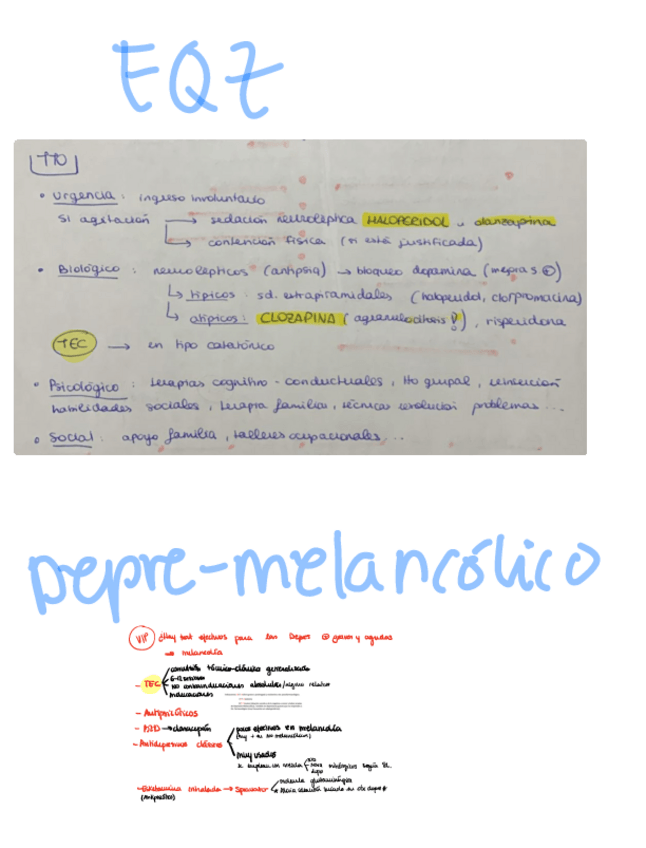 EQZ
TTO
• Urgencia: ingreso involuntario
si agitación → sedación neuroléptica HALOPERIDOL u olanzapina
↳ contención física (si está justificada)
• Biológico: neurolépticos (antipsiq) → bloqueo dopamina (mejora S ⊕)
↳ típicos: sd. extrapiramidales (haloperidol, clorpromacina)
↳ atípicos: CLOZAPINA (agranulocitosis!), risperidona
TEC → en tipo catatónico
• Psicológico: terapias cognitivo-conductuales, tto grupal, reinserción
habilidades sociales, terapia familiar, técnicas resolución problemas...
• Social: apoyo familia, talleres ocupacionales...
Depre-melancólico
VIP ¿Hay tont efectivos para las Depres graves y agudas
→ melancolía
convulsión tónico-clónica generalizada
- TEC 6-12 sesiones
No contraindicaciones absolutas/alguna relativa
Indicaciones
- Antipsicóticos
- ATD → clomipramina
- Antidepresivos clásicos
poco efectivos en melancolía
(muy + en no melancólicas)
muy usados
- Esketamina inhalada → Spravato
molécula glutamatérgica